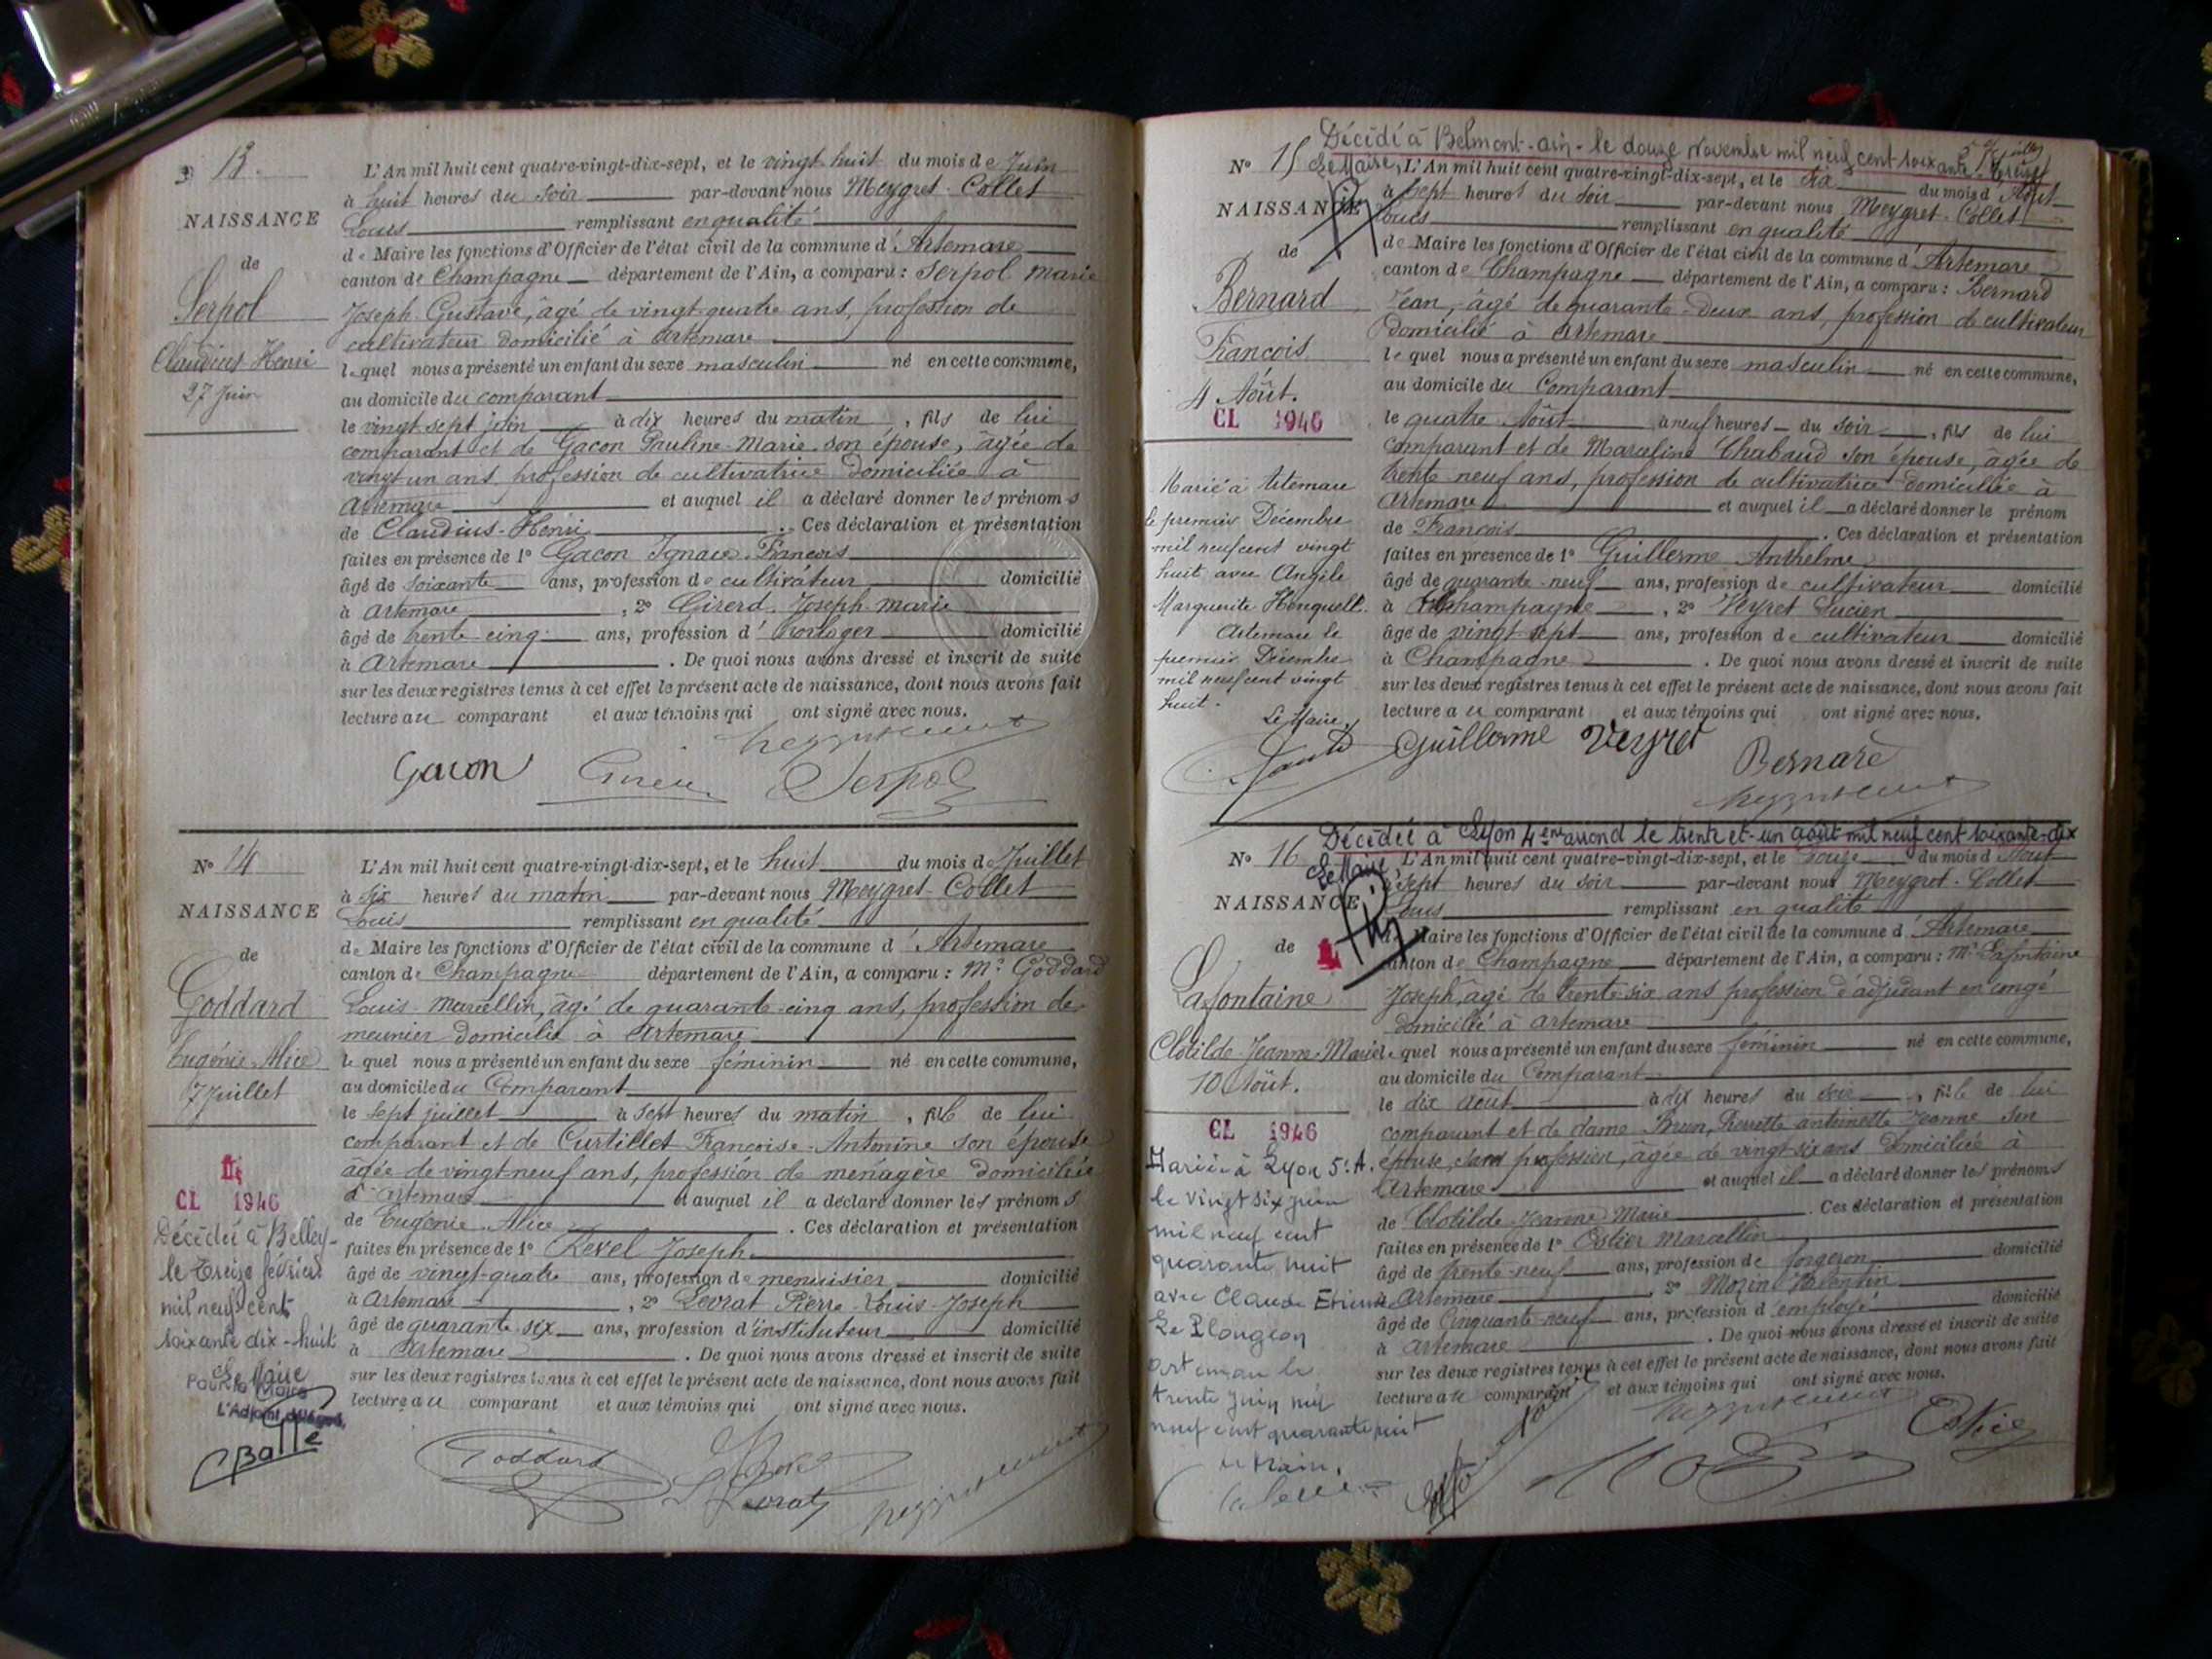 13.
NAISSANCE
de
Serpol
Claudius-Henri
27 Juin
L'An mil huit cent quatre-vingt-dix-sept, et le vingt-huit du mois de Juin
à huit heures du soir par-devant nous Meygret-Collet
Louis remplissant en qualité
de Maire les fonctions d'Officier de l'état civil de la commune d'Artemare
canton de Champagne département de l'Ain, a comparu : Serpol Marie
Joseph Gustave, âgé de vingt-quatre ans, profession de
cultivateur domicilié à Artemare
lequel nous a présenté un enfant du sexe masculin né en cette commune,
au domicile du comparant
le vingt sept juin à dix heures du matin, fils de lui
comparant et de Gacon Pauline-Marie son épouse, âgée de
vingt un ans, profession de cultivatrice domiciliée à
Artemare et auquel il a déclaré donner les prénoms
de Claudius-Henri. Ces déclaration et présentation
faites en présence de 1° Gacon Ignace François
âgé de soixante ans, profession de cultivateur domicilié
à Artemare, 2° Girerd Joseph marie
âgé de trente-cinq ans, profession d'horloger domicilié
à Artemare. De quoi nous avons dressé et inscrit de suite
sur les deux registres tenus à cet effet le présent acte de naissance, dont nous avons fait
lecture au comparant et aux témoins qui ont signé avec nous.
Gacon Serpol
N° 14
NAISSANCE
de
Goddard
Eugénie-Alice
7 Juillet
CL 1946
Décédée à Belley
le treize février
mil neuf cent
soixante dix-huit
Le Maire
Pour le Maire
L'Adjoint délégué,
L'An mil huit cent quatre-vingt-dix-sept, et le huit du mois de Juillet
à six heures du matin par-devant nous Meygret-Collet
Louis remplissant en qualité
de Maire les fonctions d'Officier de l'état civil de la commune d'Artemare
canton de Champagne département de l'Ain, a comparu : Mr Goddard
Louis-Marcellin, âgé de quarante-cinq ans, profession de
meunier domicilié à Artemare
lequel nous a présenté un enfant du sexe féminin né en cette commune,
au domicile du Comparant
le sept juillet à sept heures du matin, fille de lui
comparant et de Curtillet Françoise-Antonine son épouse
âgée de vingt-neuf ans, profession de ménagère domiciliée
à Artemare et auquel il a déclaré donner les prénoms
de Eugénie-Alice. Ces déclaration et présentation
faites en présence de 1° Revel Joseph
âgé de vingt-quatre ans, profession de menuisier domicilié
à Artemare, 2° Levrat Pierre-Louis-Joseph
âgé de quarante six ans, profession d'instituteur domicilié
à Artemare. De quoi nous avons dressé et inscrit de suite
sur les deux registres tenus à cet effet le présent acte de naissance, dont nous avons fait
lecture au comparant et aux témoins qui ont signé avec nous.
Goddard Levrat
Décédé à Belmont-ain-le douze Novembre mil neuf cent soixante
N° 15
Le Maire,
NAISSANCE
de
Bernard
François
4 Août.
CL 1946
Marié à Artemare
le premier Décembre
mil neuf cent vingt
huit avec Angèle
Marguerite
Artemare le
premier Décembre
mil neuf cent vingt
huit.
Le Maire,
L'An mil huit cent quatre-vingt-dix-sept, et le six du mois d'Août
à sept heures du soir par-devant nous Meygret-Collet
Louis remplissant en qualité
de Maire les fonctions d'Officier de l'état civil de la commune d'Artemare
canton de Champagne département de l'Ain, a comparu : Bernard
Jean, âgé de quarante-deux ans, profession de cultivateur
domicilié à Artemare
lequel nous a présenté un enfant du sexe masculin né en cette commune,
au domicile du Comparant
le quatre Août à neuf heures du soir, fils de lui
comparant et de Marceline Chabaud son épouse, âgée de
trente neuf ans, profession de cultivatrice domiciliée à
Artemare et auquel il a déclaré donner le prénom
de François. Ces déclaration et présentation
faites en présence de 1° Guillerme Anthelme
âgé de quarante-neuf ans, profession de cultivateur domicilié
à Champagne, 2° Veyret Lucien
âgé de vingt-sept ans, profession de cultivateur domicilié
à Champagne. De quoi nous avons dressé et inscrit de suite
sur les deux registres tenus à cet effet le présent acte de naissance, dont nous avons fait
lecture au comparant et aux témoins qui ont signé avec nous.
Guillerme Veyret Bernard
Décédée à Lyon 4ème arrond le trente et-un août mil neuf cent soixante-dix
N° 16
Le Maire
NAISSANCE
de
Lafontaine
Clotilde-Jeanne-Marie
10 Août.
CL 1946
Mariée à Lyon 5e A.
le vingt six juin
mil neuf cent
quarante huit
avec Claude Etienne
Le Plongeon
Artemare le
trente juin mil
neuf cent quarante huit
L'An mil huit cent quatre-vingt-dix-sept, et le douze du mois d'Août
à sept heures du soir par-devant nous Meygret-Collet
Louis remplissant en qualité
de Maire les fonctions d'Officier de l'état civil de la commune d'Artemare
canton de Champagne département de l'Ain, a comparu : Mr Lafontaine
Joseph, âgé de trente-six ans profession d'adjudant en congé
domicilié à Artemare
lequel nous a présenté un enfant du sexe féminin né en cette commune,
au domicile du Comparant
le dix août à dix heures du soir, fille de lui
comparant et de dame Brun, Pierrette antoinette Jeanne son
épouse, sans profession, âgée de vingt-six ans domiciliée à
Artemare et auquel il a déclaré donner les prénoms
de Clotilde-Jeanne-Marie. Ces déclaration et présentation
faites en présence de 1° Ostier Marcellin
âgé de trente-neuf ans, profession de forgeron domicilié
à Artemare, 2° Mozin Valentin
âgé de Cinquante-neuf ans, profession d'employé domicilié
à Artemare. De quoi nous avons dressé et inscrit de suite
sur les deux registres tenus à cet effet le présent acte de naissance, dont nous avons fait
lecture au comparant et aux témoins qui ont signé avec nous.